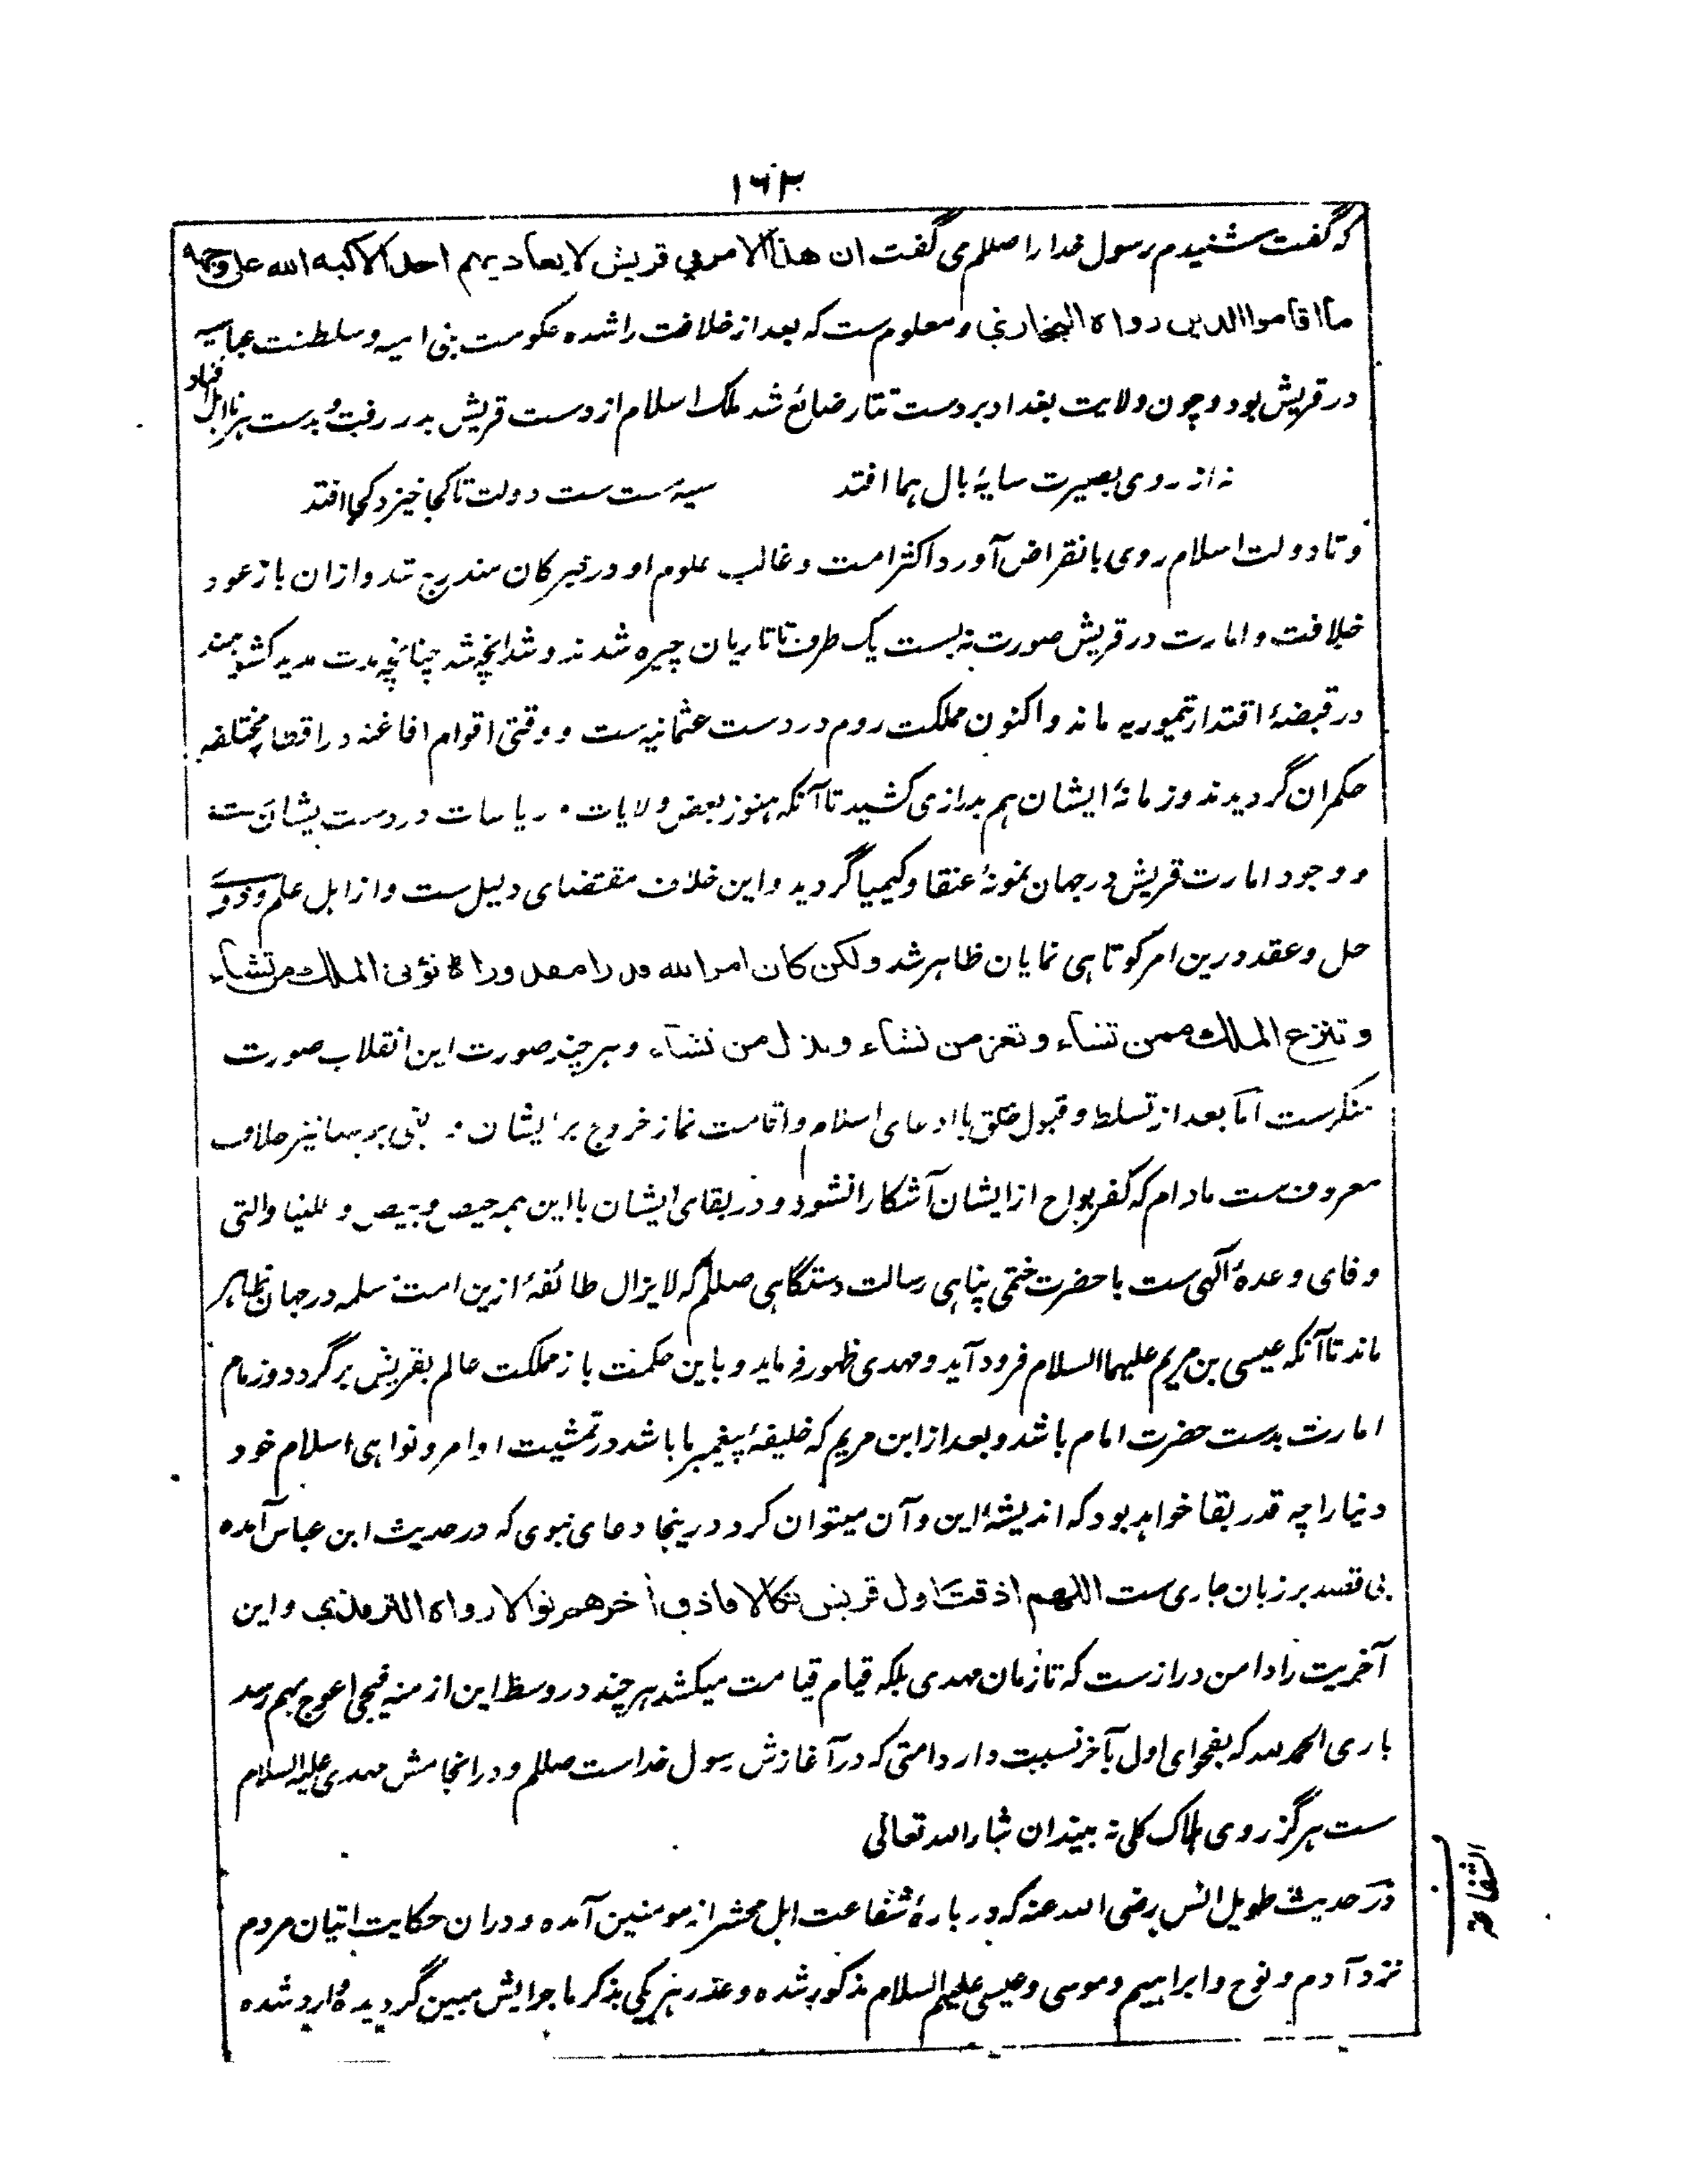 ۱۶۳
که گفت شنیدم رسول خدا را صللم می گفت ان هذا الامر في قریش لا یعادیهم احد الا کبه الله علی وجهه
ما اقاموا الدین رواه البخاري و معلوم ست که بعد از خلافت راشده حکومت بنی امیه و سلطنت عباسیه
در قریش بود و چون ولایت بغداد بردست تتار ضائع شد ملک اسلام از دست قریش بدر رفت و بدست هر نااهل افتاد
نه از روی بصیرت سایۀ بال هما افتد
سیه مست ست دولت تا کجا خیزد کجا افتد
و تا دولت اسلام روی بانقراض آورد اکثر امت و غالب علوم او در تیرکان مندرج شد و از ان باز عود
خلافت و امارت در قریش صورت نه بست یک طرف تاتاریان چیره شدند و شد انچه شد چنانچه مدت مدید کشور هند
در قبضۀ اقتدار تیموریه ماند و اکنون مملکت روم در دست عثمانیه ست و وقتی اقوام افاغنه در اقطار مختلفه
حکمران گردیدند و زمانۀ ایشان هم بدرازی کشید تا آنکه هنوز بعض ولایات و ریاسات در دست ایشان ست
و وجود امارت قریش در جهان نمونۀ عنقا و کیمیا گردید و این خلاف مقتضای دلیل ست و از اهل علم و ذوی
حل و عقد درین امر کوتاهی نمایان ظاهر شد ولکن کان امر الله قدرا مقدورا ه تؤتی الملک من تشاء
و تنزع الملک ممن تشاء و تعز من تشاء و تذل من تشاء و هر چند صورت این انقلاب صورت
منکر ست اما بعد از تسلط و قبول خلق با ادعای اسلام و اقامت نماز خروج بر ایشان و بغی بر نیز خلاف
معروف ست مادام که کفر بواح از ایشان آشکارا نشود و در بقای ایشان با این همه حیص و بیص و للتیا والتی
وفای وعدۀ الهی ست با حضرت ختمی پناهی رسالت دستگاهی صللم که لا یزال طائفۀ ازین امت مسلمه در جهان ظاهر
ماند تا آنکه عیسی بن مریم علیهما السلام فرود آید و مهدی ظهور فرماید و باین حکمت باز مملکت عالم بقریش برگردد و زمام
امارت بدست حضرت امام باشد و بعد از ابن مریم که خلیفۀ پیغمبر ما باشد در تمشیت اوامر و نواهی اسلام خود
دنیا را چه قدر بقا خواهد بود که اندیشۀ این و آن میتوان کرد درینجا دعای نبوی که در حدیث ابن عباس آمده
بی قصد بر زبان جاری ست اللهم اذقت اول قریش نکالا فاذق آخرهم نوالا رواه الترمذي و این
آخریت را دامن دراز ست که تا زمان مهدی بلکه قیام قیامت میکشد هر چند در وسط این ازمنه فیج اعوج بهم رسد
باری الحمد لله که بفحوای اول بآخر نسبت دارد امتی که در آغازش رسول خداست صللم و در انجامش مهدی علیه السلام
ست هرگز روی هلاک کلی نه بیند ان شاء الله تعالی
در حدیث طویل انس رضی الله عنه که در بارۀ شفاعت اهل محشر از مومنین آمده و دران حکایت اتیان مردم
نزد آدم و نوح و ابراهیم و موسی و عیسی علیهم السلام مذکور شده و عذر هر یکی بذکر ماجرایش مبین گردیده وارد شده